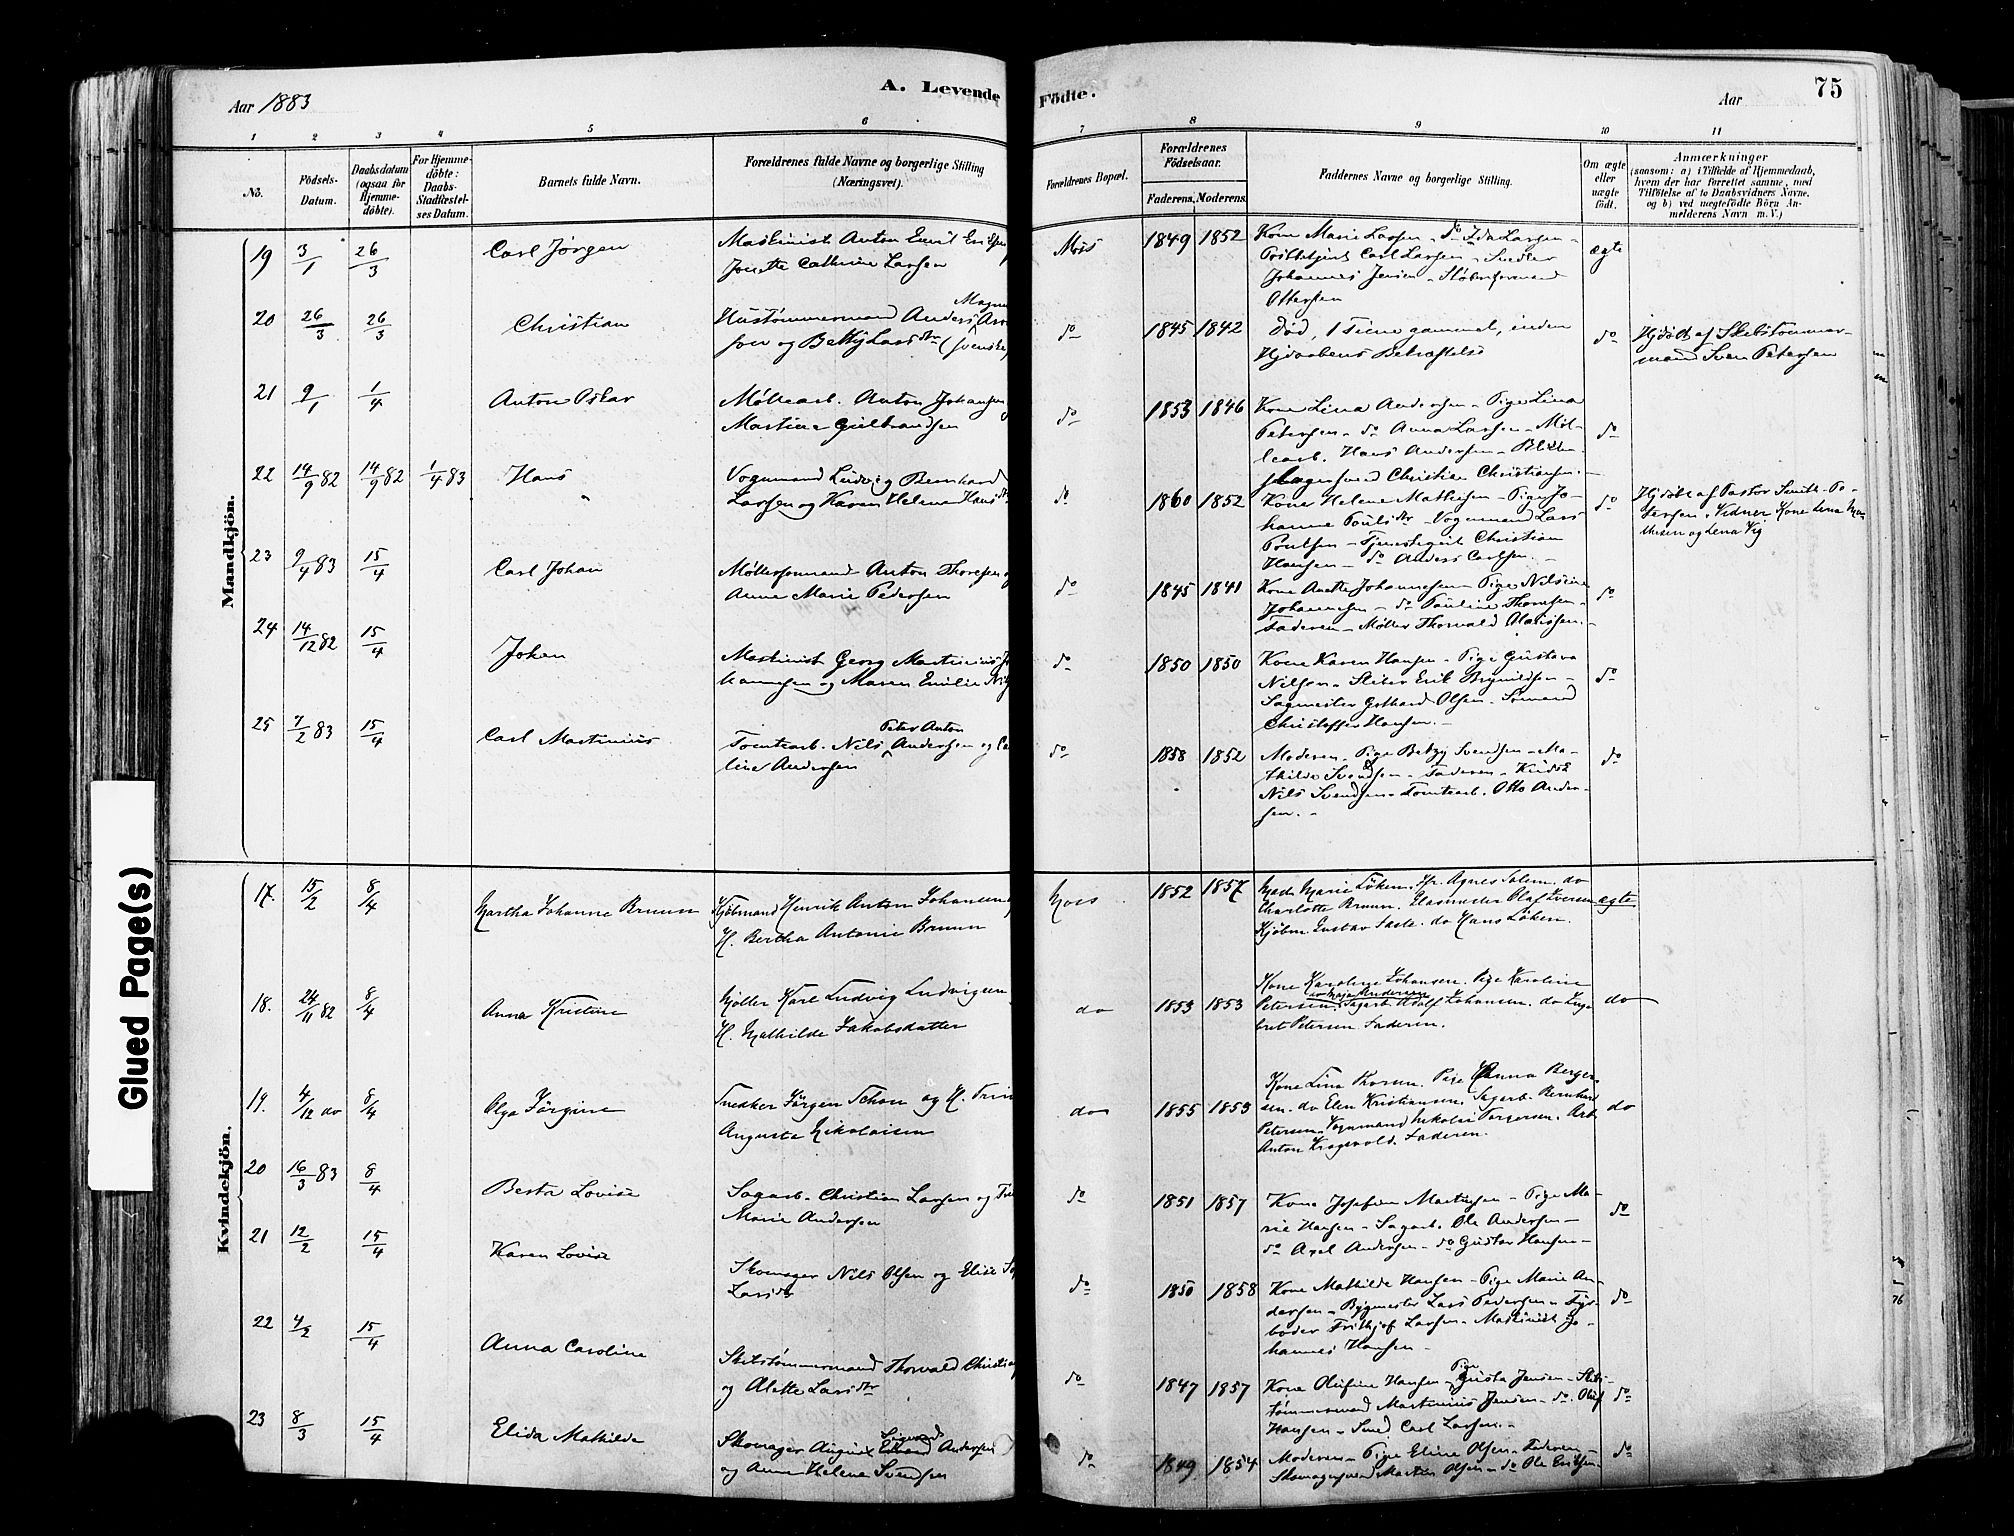 Aar 1883
A. Levende
Födte.
Aar
75
1 2 3 4 5 6 7 8 9 10 11
Nö.
Födsels-
Datum.
Daabsdatum
(ogsaa for
Hjemme-
döbte).
For Hjemme-
döbte:
Daabs-
Stadfæstel-
ses Datum.
Barnets fulde Navn.
Forældrenes fulde Navne og borgerlige Stilling
(Næringsvei).
Forældrenes Bopæl.
Forældrenes
Födselsaar.
Faderens. Moderens.
Faddernes Navne og borgerlige Stilling.
Om ægte
eller
uægte
födt.
Anmærkninger
(saasom: a) i Tilfælde af Hjemmedaab,
hvem der har forrettet samme, med
Tilföielse af to Daabsvidners Navne,
og b) ved uægtefödte Börn An-
melderens Navn m. V.)
Mandkjön.
19 3/1 26/3 Carl Jørgen
Maskinist Anton Emil Eriksen
Josette Cathrine Larsen
Mos 1849 1852
Kone Marie Larsen - do Ida Larsen -
Carl Larsen - Snedker
Johannes Jensen - Støberformand
Ottersen
ægte
20 26/3 26/3 Christian
Magnus
Hustømmermand Anders Aro
sen og Betty Larsdtr (svenske)
do 1845 1842
Død, 1 Time gammel, inden
Hjdaabens Bekræftelse
do
Hjdøbt af Skibstømmer-
mand Sven Petersen
21 9/1 1/4 Anton Oskar
Møllearb. Anton Johansen
Martine Gulbrandsen
do 1853 1846
Kone Lina Andersen - Pige Lina
Petersen - do Anna Larsen - Møl-
learb. Hans Andersen - Blikken-
slagersvend Christian Christiansen. -
do
22 14/9 82 14/9 82 1/4 83 Hans
Vognmand Ludvig Bernhard
Larsen og Karen Helena Hansdtr
do 1860 1852
Kone Helene Mathisen - Pige Jo-
hanne Poulsdtr - Vognmand Lars
Poulsen - Tjenestegut Christian
Hansen - do Anders Carlsen. -
do
Hjdøbt af Pastor Smith-Pe-
tersen. Vidner Kone Lena Ma-
thesen og Lena Vig
23 9/4 83 15/4 Carl Johan
Møllerformand Anton Thoresen og
Anne Marie Pedersen
do 1845 1841
Kone Anette Johannesen - Pige Nilsine
Johannesen - do Pauline Thoresen -
Faderen - Møller Thorvald Olausen. -
do
24 14/12 82 15/4 Johan
Maskinist Georg Martinius Jo
hannesen og Maren Emilie Nils
do 1850 1850
Kone Karen Hansen - Pige Gustava
Nilsen - Sliber Erik Brynildsen -
Sagmester Gothard Olsen - Sømand
Christoffer Hansen. -
do
25 7/2 83 15/4 Carl Martinius
Peter Anton
Tomtearb. Nils Andersen og Ca
line Andersen
do 1858 1852
Moderen - Pige Betzy Svendsen - Ma-
thilde Svendsen - Faderen - Kudsk
Nils Svendsen - Tomtearb. Otto Ander-
sen. -
do
Kvindekjön.
17. 15/2 8/4 Martha Johanne Bruun
Kjøbmand Henrik Anton Johansen
H. Bertha Antonie Bruun
Mos 1852 1857
Mad. Marie Løken. Fr. Agnes Salem. do
Charlotte Bruun. Glasmester Olaf Iversen
Kjøbm. Gustav Saste. do Hans Løken.
ægte
18. 24/11 82 8/4 Anna Kristine
Møller Karl Ludvig Ludvigsen
H. Mathilde Jakobsdatter
do 1853 1853
Kone Karoline Johansen. Pige Karoline
do Maja Andersen
Petersen. Sagarb. Adolf Johansen. do Inge
bret Petersen. Faderen.
do
19. 4/12 do 8/4 Olga Jørgine
Snedker Jørgen Schou og H. Trin
Augusta Nikolaisen
do 1855 1853
Kone Lina Thoresen. Pige Hanna Berger-
sen. do Elen Kristiansen. Sagarb. Bernhard
Petersen. Vognmand Nikolai Torgersen. Arb.
Anton Kragevold. Faderen.
do
20 16/3 83 8/4 Berta Lovise
Sagarb. Christian Larsen og
Marie Andersen
do 1851 1857
Kone Josefine Martinsen - Pige Ma-
rie Hansen - Sagarb. Ole Andersen -
do Axel Andersen - do Gustav Hansen -
do
21 12/2 15/4 Karen Lovise
Skomager Nils Olsen og Elise
Larsdtr
do 1850 1858
Kone Mathilde Hansen - Pige Marie An-
dersen - Bygmester Lars Pedersen - Fyr-
bøder Frithjof Larsen - Maskinist Jo-
hannes Hansen -
do
22 4/2 15/4 Anna Caroline
Skibstømmermand Thorvald Christian
og Alette Larsdtr
do 1847 1857
Pige
Kone Olufine Hansen - Gusta Jensen - Skibs-
tømmermand Martinius Jensen - do Oluf
Hansen - Smed Carl Larsen. -
do
23 8/3 15/4 Elida Mathilde
Skomager August Andersen
og Anne Helene Svendsen
do 1849 1854
Moderen - Pige Eline Olsen - Faderen -
Skomagersvend Martin Olsen - do Ole Eriksen -
do
Glued Page(s)